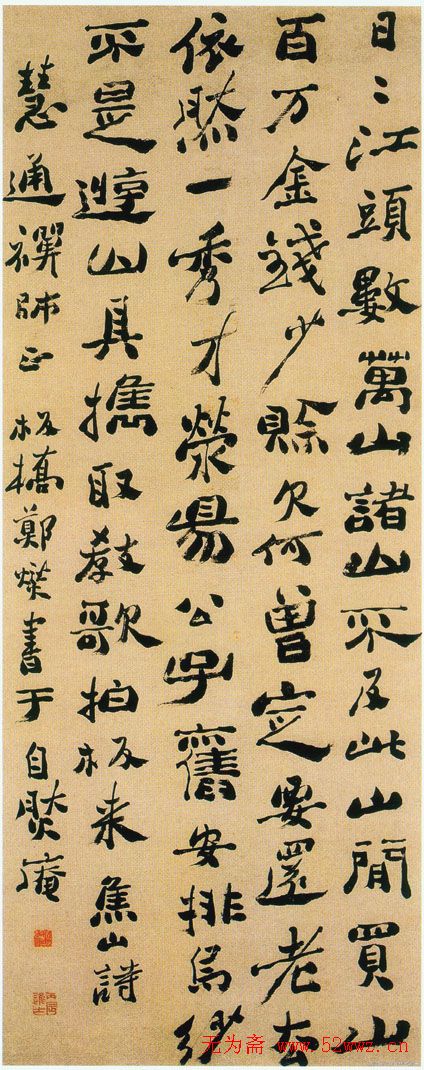 日〻江頭數萬山諸山不及此山閒買山
百万金錢少賒欠何曾定要還老去
依然一秀才滎昜公子舊安排烏紗
不是遊山具攜取教歌拍板来焦山詩
慧通禪師正 板橋鄭燮書于自然庵
无为斋 www.52wwz.cn